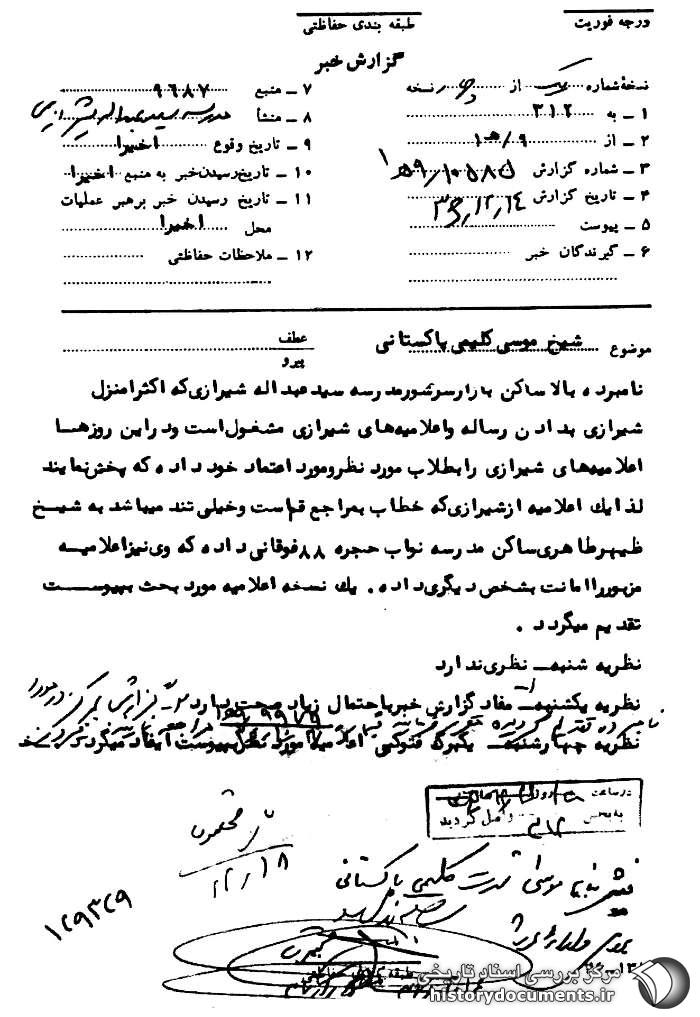 درجه فوریت
طبقه بندی حفاظتی
گزارش خبر
نسخهٔ شماره یک از نسخه
۱ ـ به ۳۱۲
۲ ـ از ۹/ه۱
۳ ـ شماره گزارش
۴ ـ تاریخ گزارش
۵ ـ پیوست
۶ ـ گیرندگان خبر
۷ ـ منبع ۹۶۸۷
۸ ـ منشأ مدرسه سیدعبداله شیرازی
۹ ـ تاریخ وقوع اخیرا
۱۰ ـ تاریخ رسیدن خبر به منبع اخیرا
۱۱ ـ تاریخ رسیدن خبر برهبر عملیات
محل اخیرا
۱۲ ـ ملاحظات حفاظتی
موضوع شیخ موسی کلیمی پاکستانی
عطف
پیرو
نامبرده بالا ساکن بازار سرشور مدرسه سید عبداله شیرازی که اکثرا منزل
شیرازی بدادن رساله واعلامیه‌های شیرازی مشغول است ودراین روزها
اعلامیه‌های شیرازی را بطلاب مورد نظر ومورد اعتماد خود داده که پخش نمایند
لذا یك اعلامیه از شیرازی که خطاب بمراجع قم است وخیلی تند میباشد به شیخ
ظهیر طاهری ساکن مدرسه نواب حجره ۸۸ فوقانی داده که وی نیز اعلامیه
مزبور را امانت بشخص دیگری داده. یك نسخه اعلامیه مورد بحث بپیوست
تقدیم میگردد.
نظریه شنبه ـ نظری ندارد
نظریه یکشنبه ـ مفاد گزارش خبر باحتمال زیاد صحت دارد
نظریه چهارشنبه ـ یکبرگ فتوکپی اعلامیه مورد نظر بپیوست ایفاد میگردد
در ساعت
به بخش ۳۱۲ واصل گردید
۱۲/۱۸
موسی کلیمی پاکستانی
۱۲۹۳۲۹
مرکز بررسی اسناد تاریخی
historydocuments.ir